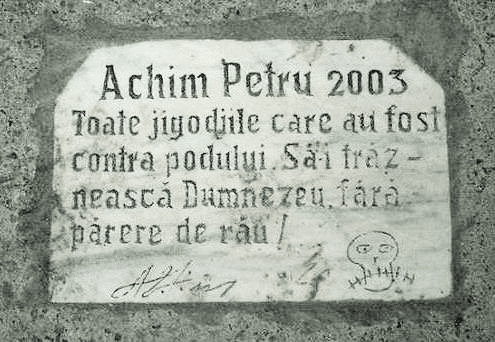 Achim Petru 2003
Toate jigodiile care au fost
contra podului. Să-i trăz-
nească Dumnezeu, fără
părere de rău!